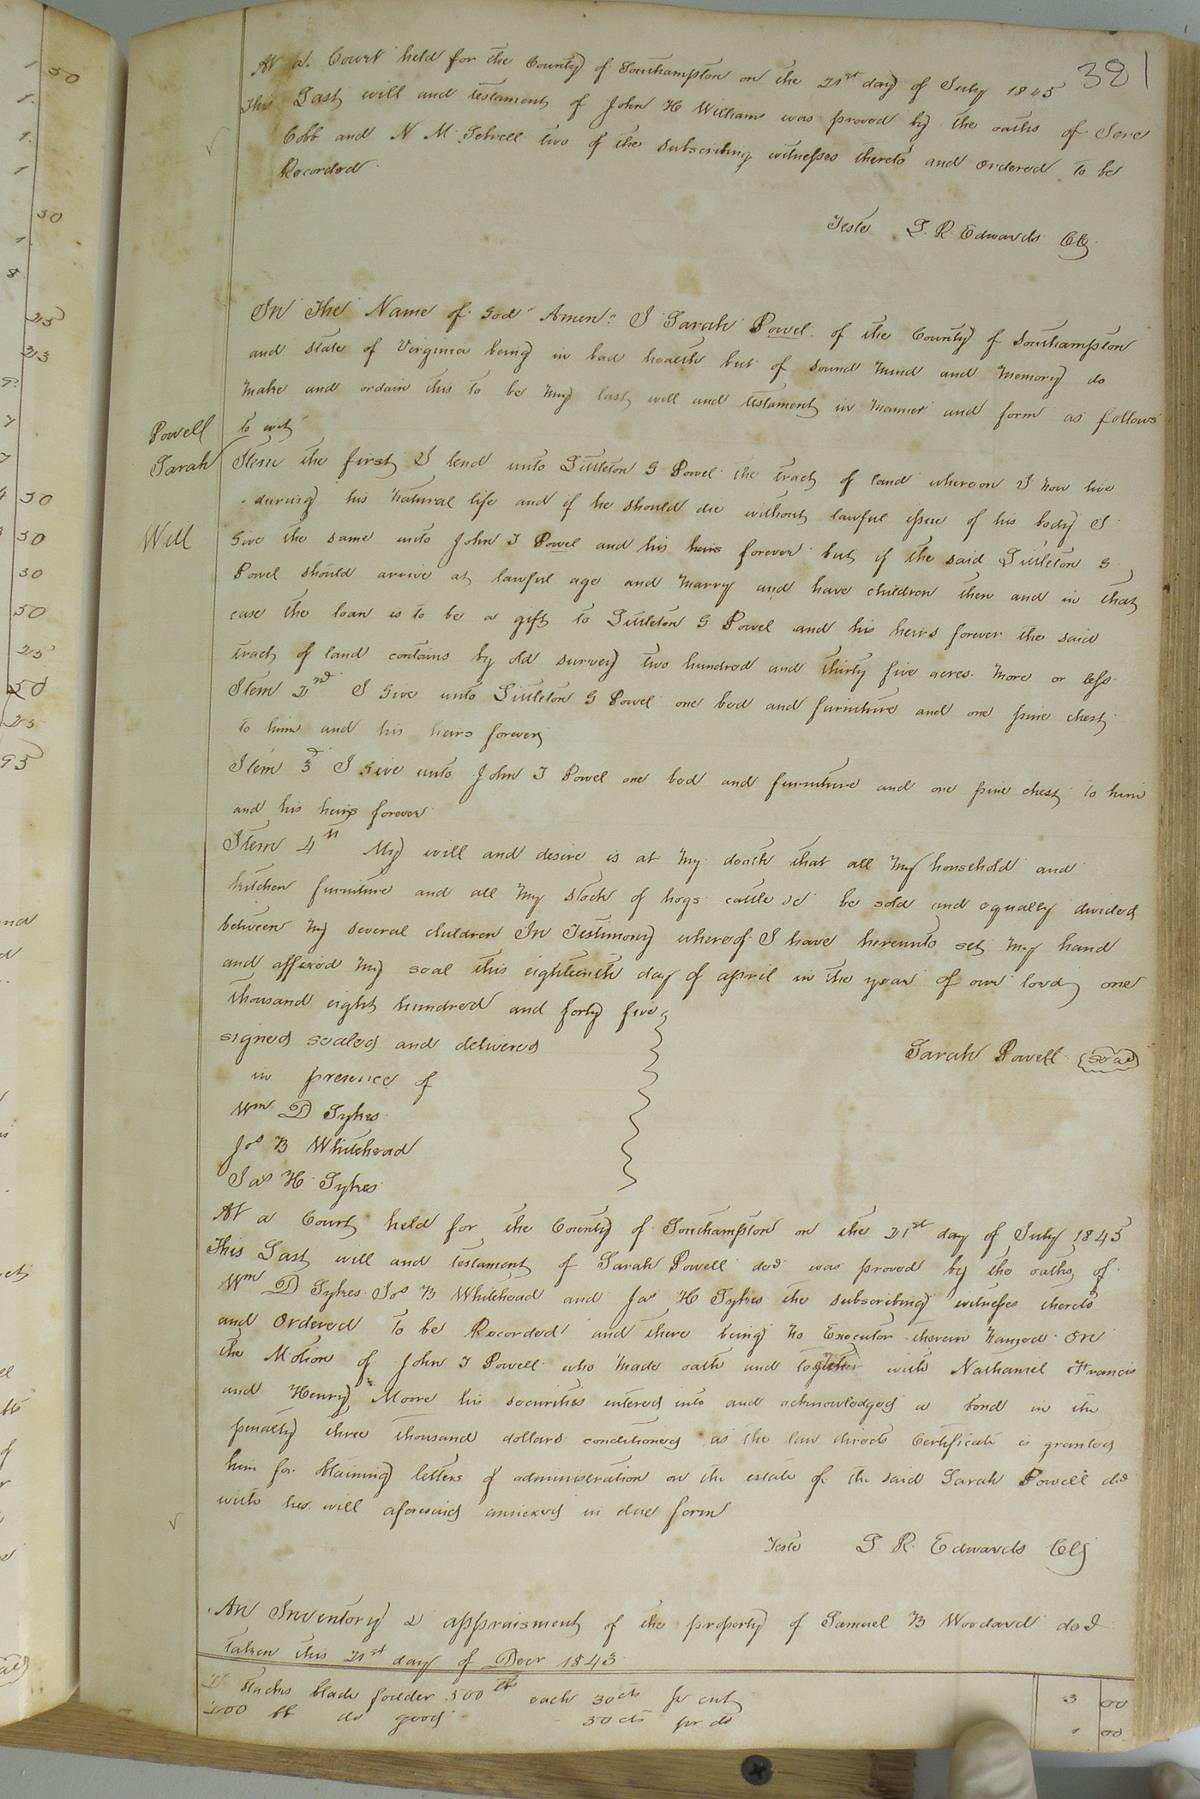 381
At a Court held for the County of Southampton on the 21st day of July 1845
This Last will and testament of John H Williams was proved by the oaths of Jere
Cobb and N M Sebrell two of the subscribing witnesses thereto and ordered to be
Recorded
Teste L. R. Edwards Clk
In The Name of God Amen. I Sarah Powel of the County of Southampton
and state of Virginia being in bad health but of sound mind and memory do
make and ordain this to be my last will and testament in manner and form as follows
to wit
Powell
Sarah
Will
Item the first I lend unto Littleton G Powel the tract of land whereon I now live
during his natural life and if he should die without lawful issue of his body I
Give the same unto John T Powel and his heirs forever but if the said Littleton G
Powel should arrive at lawful age and marry and have children then and in that
case the loan is to be a gift to Littleton G Powel and his heirs forever the said
tract of land contains by old survey two hundred and thirty five acres more or less
Item 2nd I Give unto Littleton G Powel one bed and furniture and one pine chest
to him and his heirs forever
Item 3d I Give unto John T Powel one bed and furniture and one pine chest to him
and his heirs forever
Item 4th My will and desire is at my death that all my household and
kitchen furniture and all my stock of hogs cattle &c be sold and equally divided
between my several children In Testimony whereof I have hereunto set my hand
and affixed my seal this eighteenth day of april in the year of our lord one
thousand eight hundred and forty five
signed sealed and delivered
Sarah Powell (Seal)
in presence of
Wm D Sykes
Jos B Whitehead
Jas H Sykes
At a Court held for the County of Southampton on the 21st day of July 1845
This Last will and testament of Sarah Powell decd was proved by the oaths of
Wm D Sykes Jos B Whitehead and Jas H Sykes the subscribing witnesses thereto
and Ordered To be Recorded and there being no Executor therein named On
the Motion of John T Powell who made oath and together with Nathaniel Francis
and Henry Moore his securities entered into and acknowledged a bond in the
penalty three thousand dollars conditioned as the law directs Certificate is granted
him for obtaining letters of administration on the estate of the said Sarah Powell decd
with her will aforesaid annexed in due form
Teste L. R. Edwards Clk
An Inventory & appraisment of the property of Samuel B Woodard decd
taken this 21st day of Decr 1843
Stacks blade fodder 500 lb each 30cts pr cut 3 00
do good 50 cts pr do 00